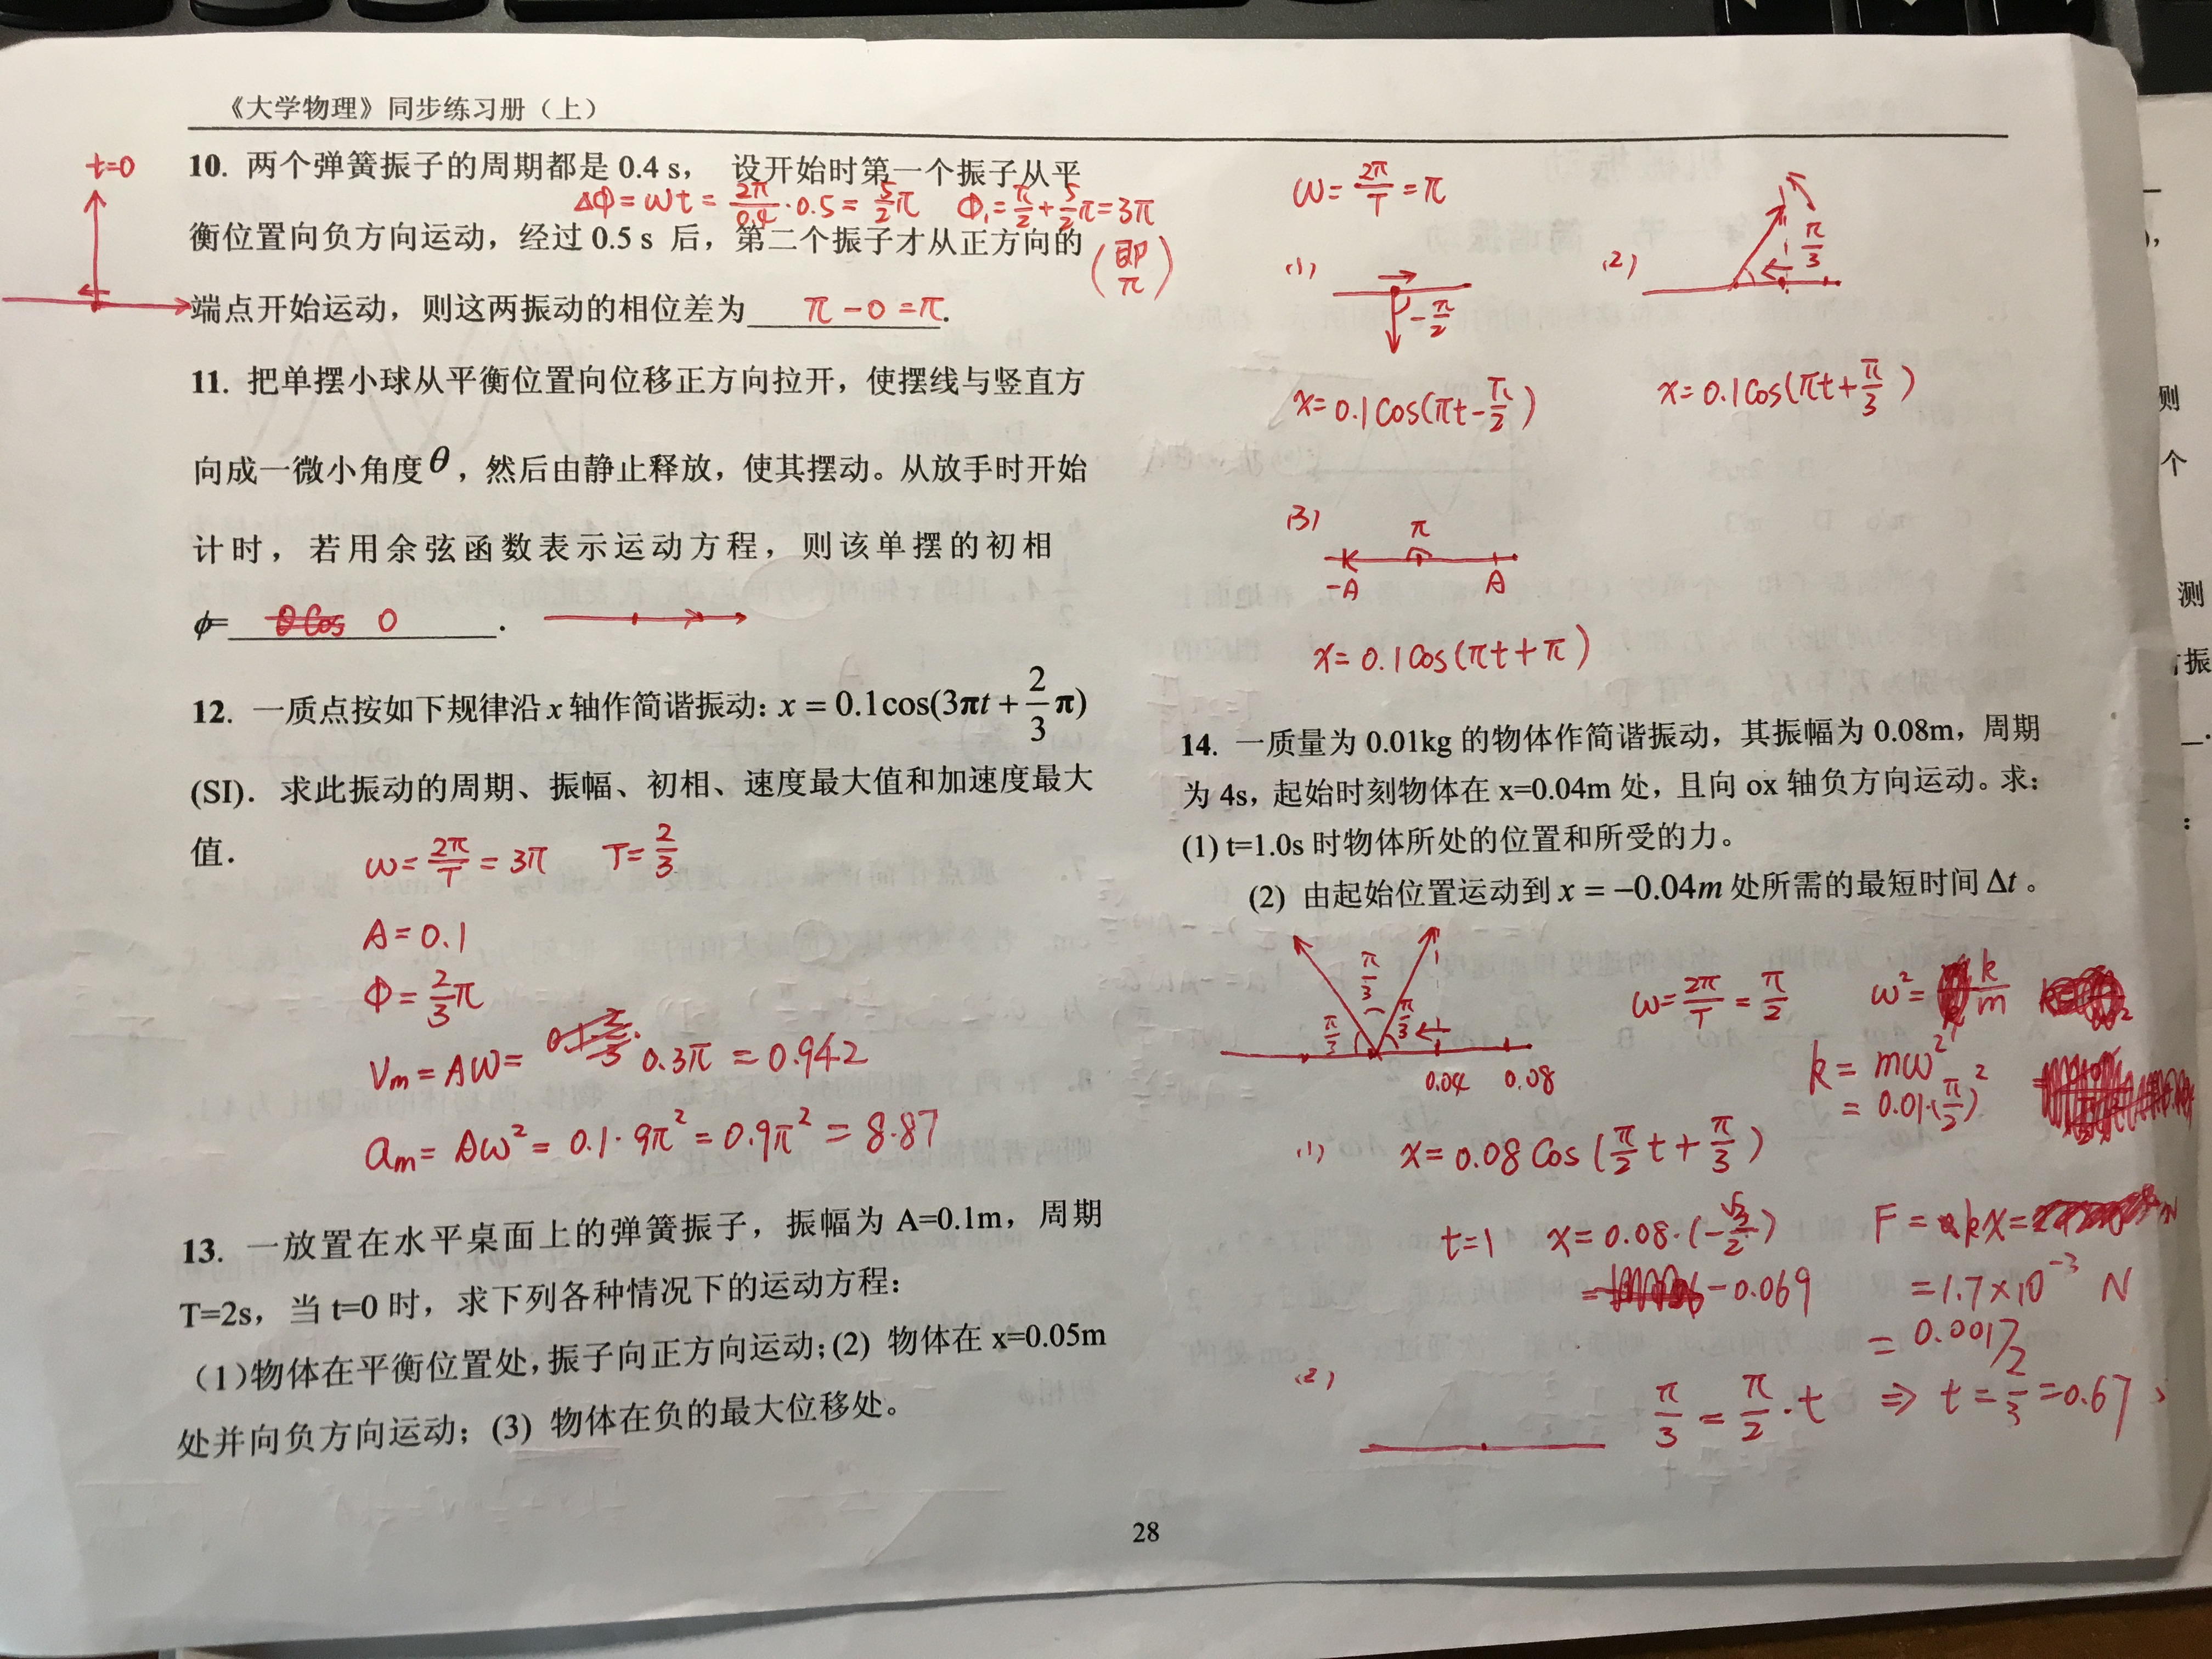 《大学物理》同步练习册（上）
t=0
10. 两个弹簧振子的周期都是 0.4 s， 设开始时第一个振子从平
ΔΦ=ωt=2π/0.4·0.5=5/2π Φ₁=π/2+5/2π=3π
衡位置向负方向运动，经过 0.5 s 后，第二个振子才从正方向的
(即π)
端点开始运动，则这两振动的相位差为 π-0=π .
11. 把单摆小球从平衡位置向位移正方向拉开，使摆线与竖直方
向成一微小角度θ，然后由静止释放，使其摆动。从放手时开始
计时，若用余弦函数表示运动方程，则该单摆的初相
ϕ= 0 .
12. 一质点按如下规律沿 x 轴作简谐振动：x = 0.1cos(3πt + 2/3 π)
(SI). 求此振动的周期、振幅、初相、速度最大值和加速度最大
值.
ω=2π/T=3π T=2/3
A=0.1
Φ=2/3π
Vm=Aω= 0.3π=0.942
am=Aω²=0.1·9π²=0.9π²=8.87
13. 一放置在水平桌面上的弹簧振子，振幅为 A=0.1m，周期
T=2s，当 t=0 时，求下列各种情况下的运动方程：
（1)物体在平衡位置处,振子向正方向运动;(2) 物体在 x=0.05m
处并向负方向运动；(3) 物体在负的最大位移处。
ω=2π/T=π
(1) -π/2
(2) π/3
x=0.1cos(πt-π/2)
x=0.1cos(πt+π/3)
(3) π
-A A
x=0.1cos(πt+π)
14. 一质量为 0.01kg 的物体作简谐振动，其振幅为 0.08m，周期
为 4s，起始时刻物体在 x=0.04m 处，且向 ox 轴负方向运动。求：
(1) t=1.0s 时物体所处的位置和所受的力。
(2) 由起始位置运动到 x = −0.04m 处所需的最短时间 Δt 。
π/3 π/3 π/3
0.04 0.08
ω=2π/T=π/2 ω²=k/m
k=mω²
=0.01·(π/2)²
(1) x=0.08cos(π/2t+π/3)
t=1 x=0.08·(-√3/2) F=kx=
=-0.069 =1.7×10⁻³ N
=0.0017
(2) π/3=π/2·t ⇒ t=2/3=0.67 s
28
则
个
测
振